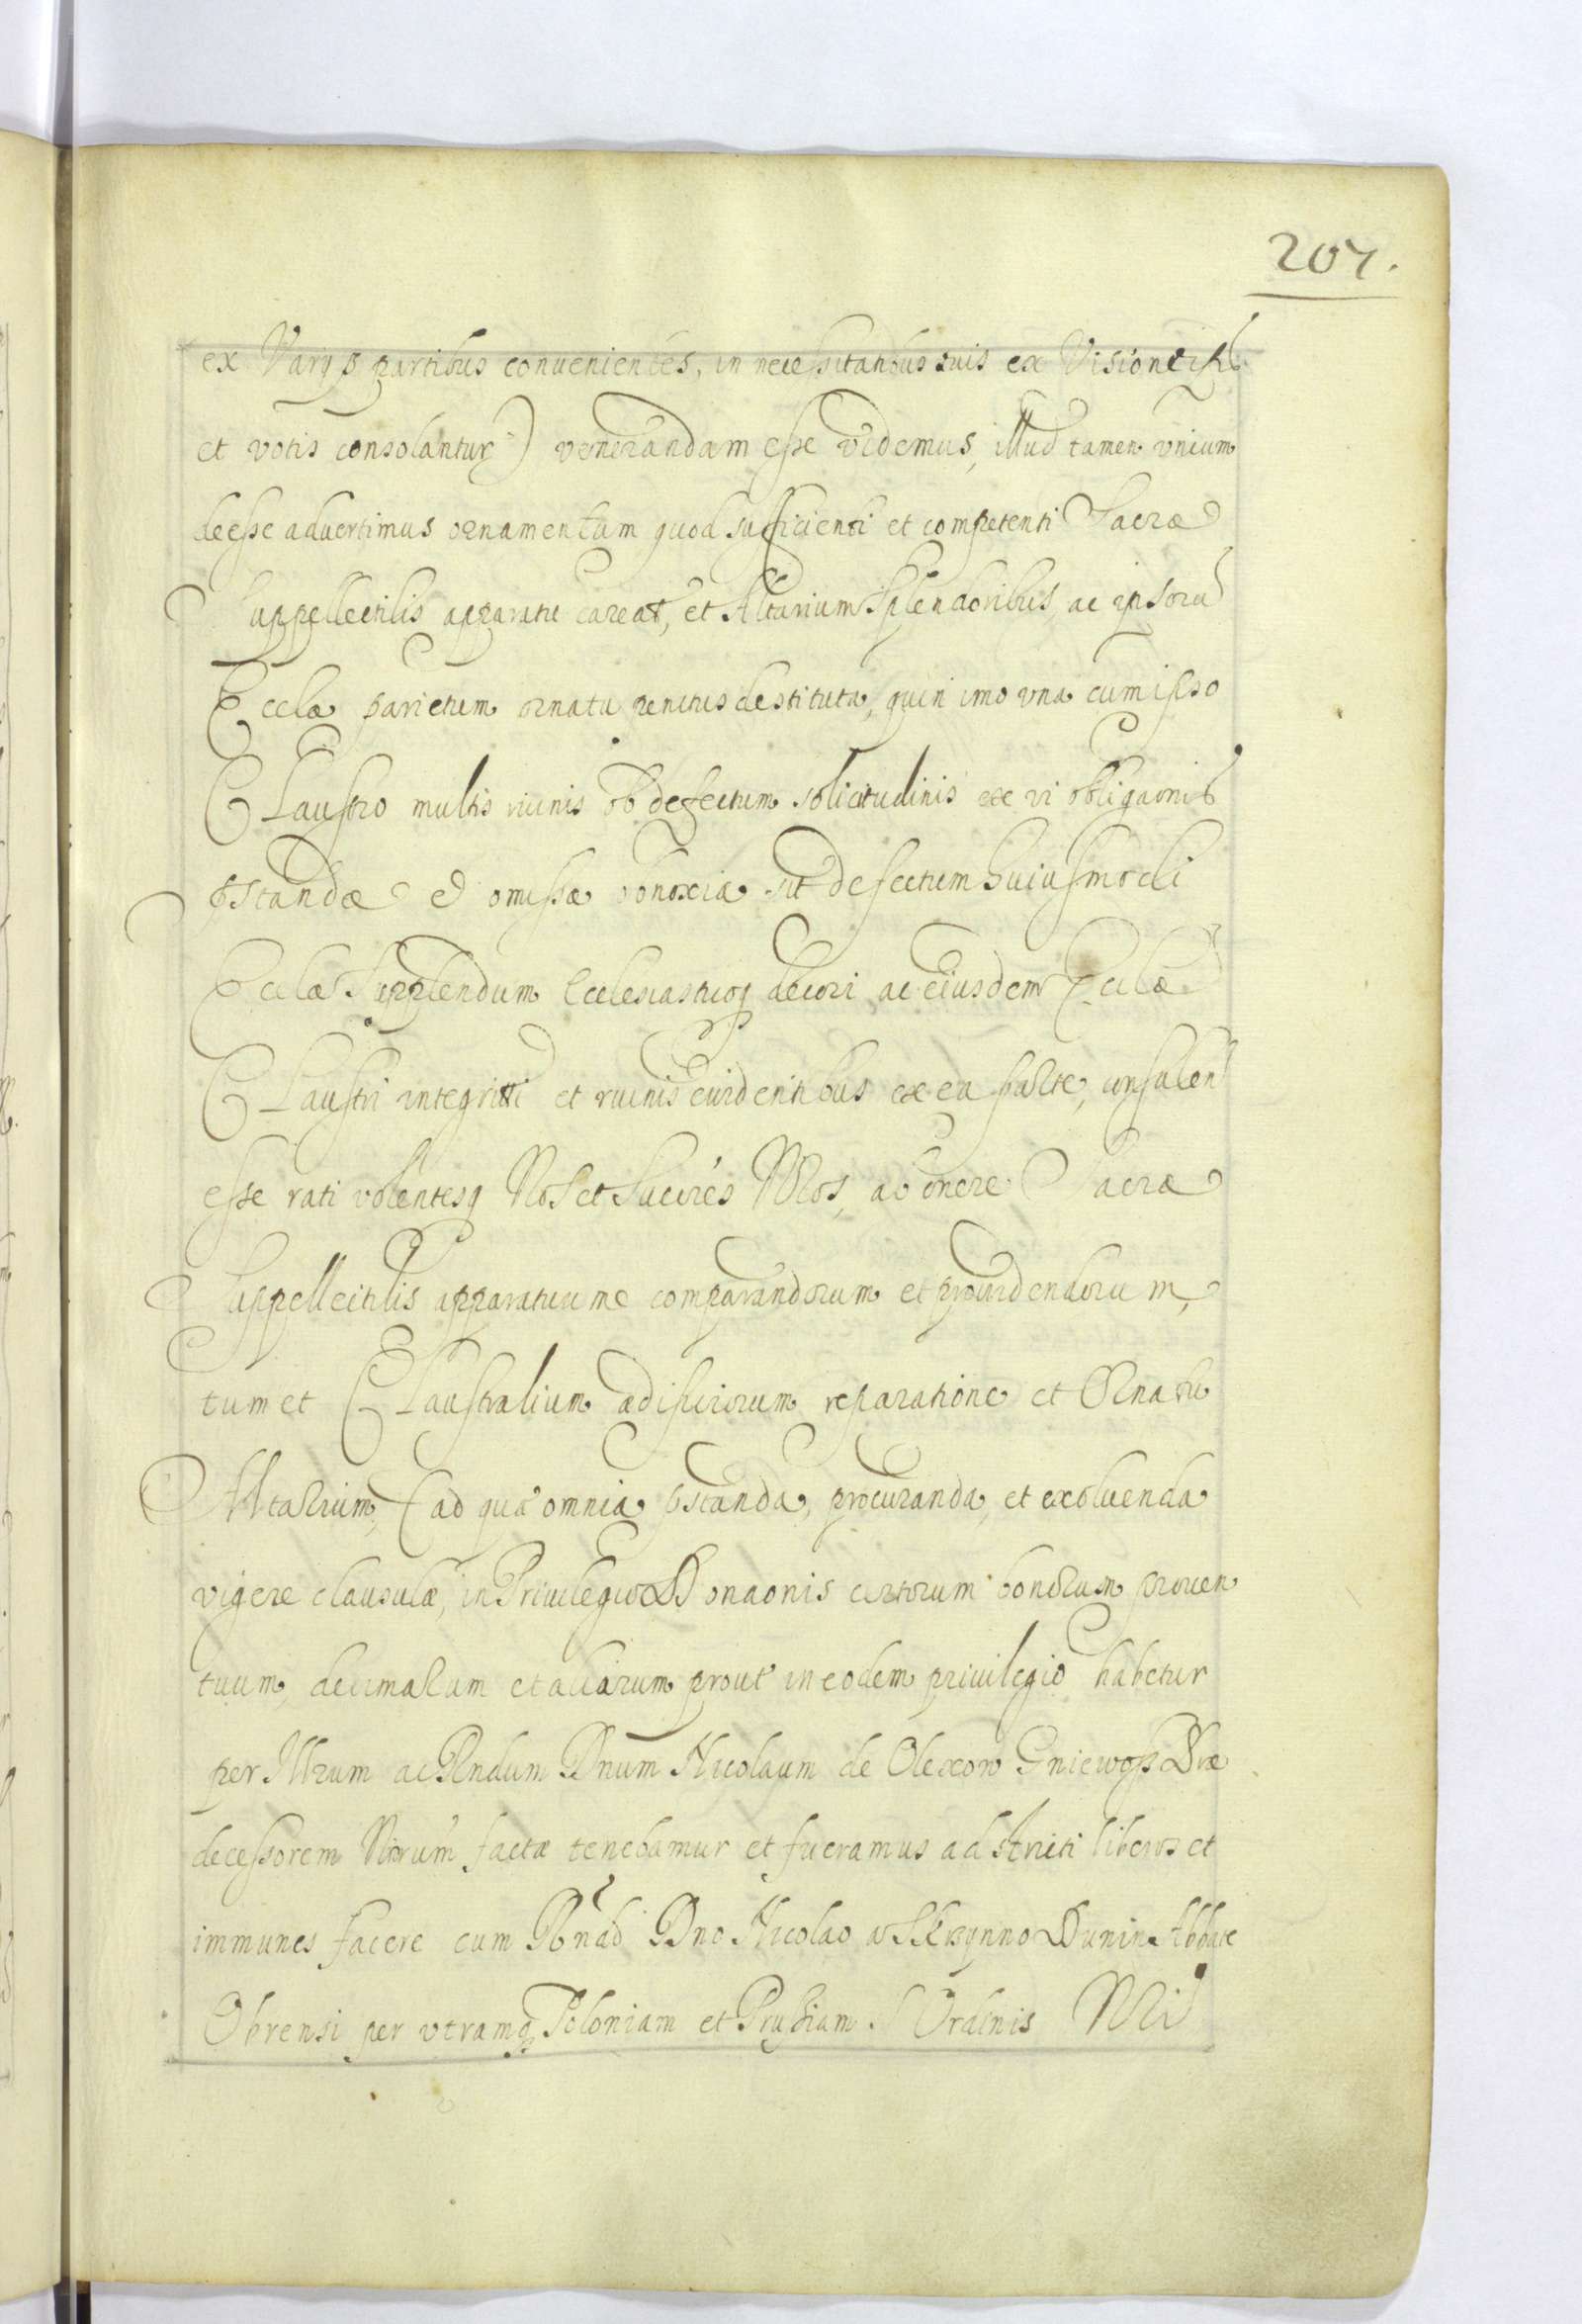 207.
ex Varys partibus conuenientes, in necessitatibus suis ex Visione
et votis consolantur) venerandam esse videmus, illud tamen vnicum
deesse aduertimus ornamentum quod sufficienti et competenti Sacræ
Suppellectilis apparatu careat, et Altarium Splendoribus, ac ipsorũ
Ecclæ parietum ornatu penitus destituta, quin imo vna cum ipso
Claustro multis ruinis ob defectum solicitudinis ex vi obligaonis
pstandæ et omissæ obnoxia sit defectum huiusmodi
Ecclæ Supplendum Ecclesiasticoq decori ac eiusdem Ecclæ
Claustri integritti et ruinis euidentibus ex ea parte, consulen
esse rati volentesq Nos et Succres Nros, ab onere Sacræ
Suppellectilis apparatuume comparandorum et prouidendorum,
tum et Claustralium ædificiorum reparatione et Ornatu
Altarium, (ad quæ omnia pstanda, procuranda, et exoluenda
vigere clausulæ, in Priuilegio Donaonis certorum bonorum prouen
tuum, decimarum et aliarum prout in eodem priuilegio habetur
per Illrum ac Rndum Dnum Nicolaum de Olexow Gniewosz Præ
decessorem Nrum factæ tenebamur et fueramus adstricti liberos et
immunes facere cum Rndo Dno Nicolao a Skrzynno Dunin Abbate
Obrensi per vtramq Poloniam et Prussiam S Ordinis Nri